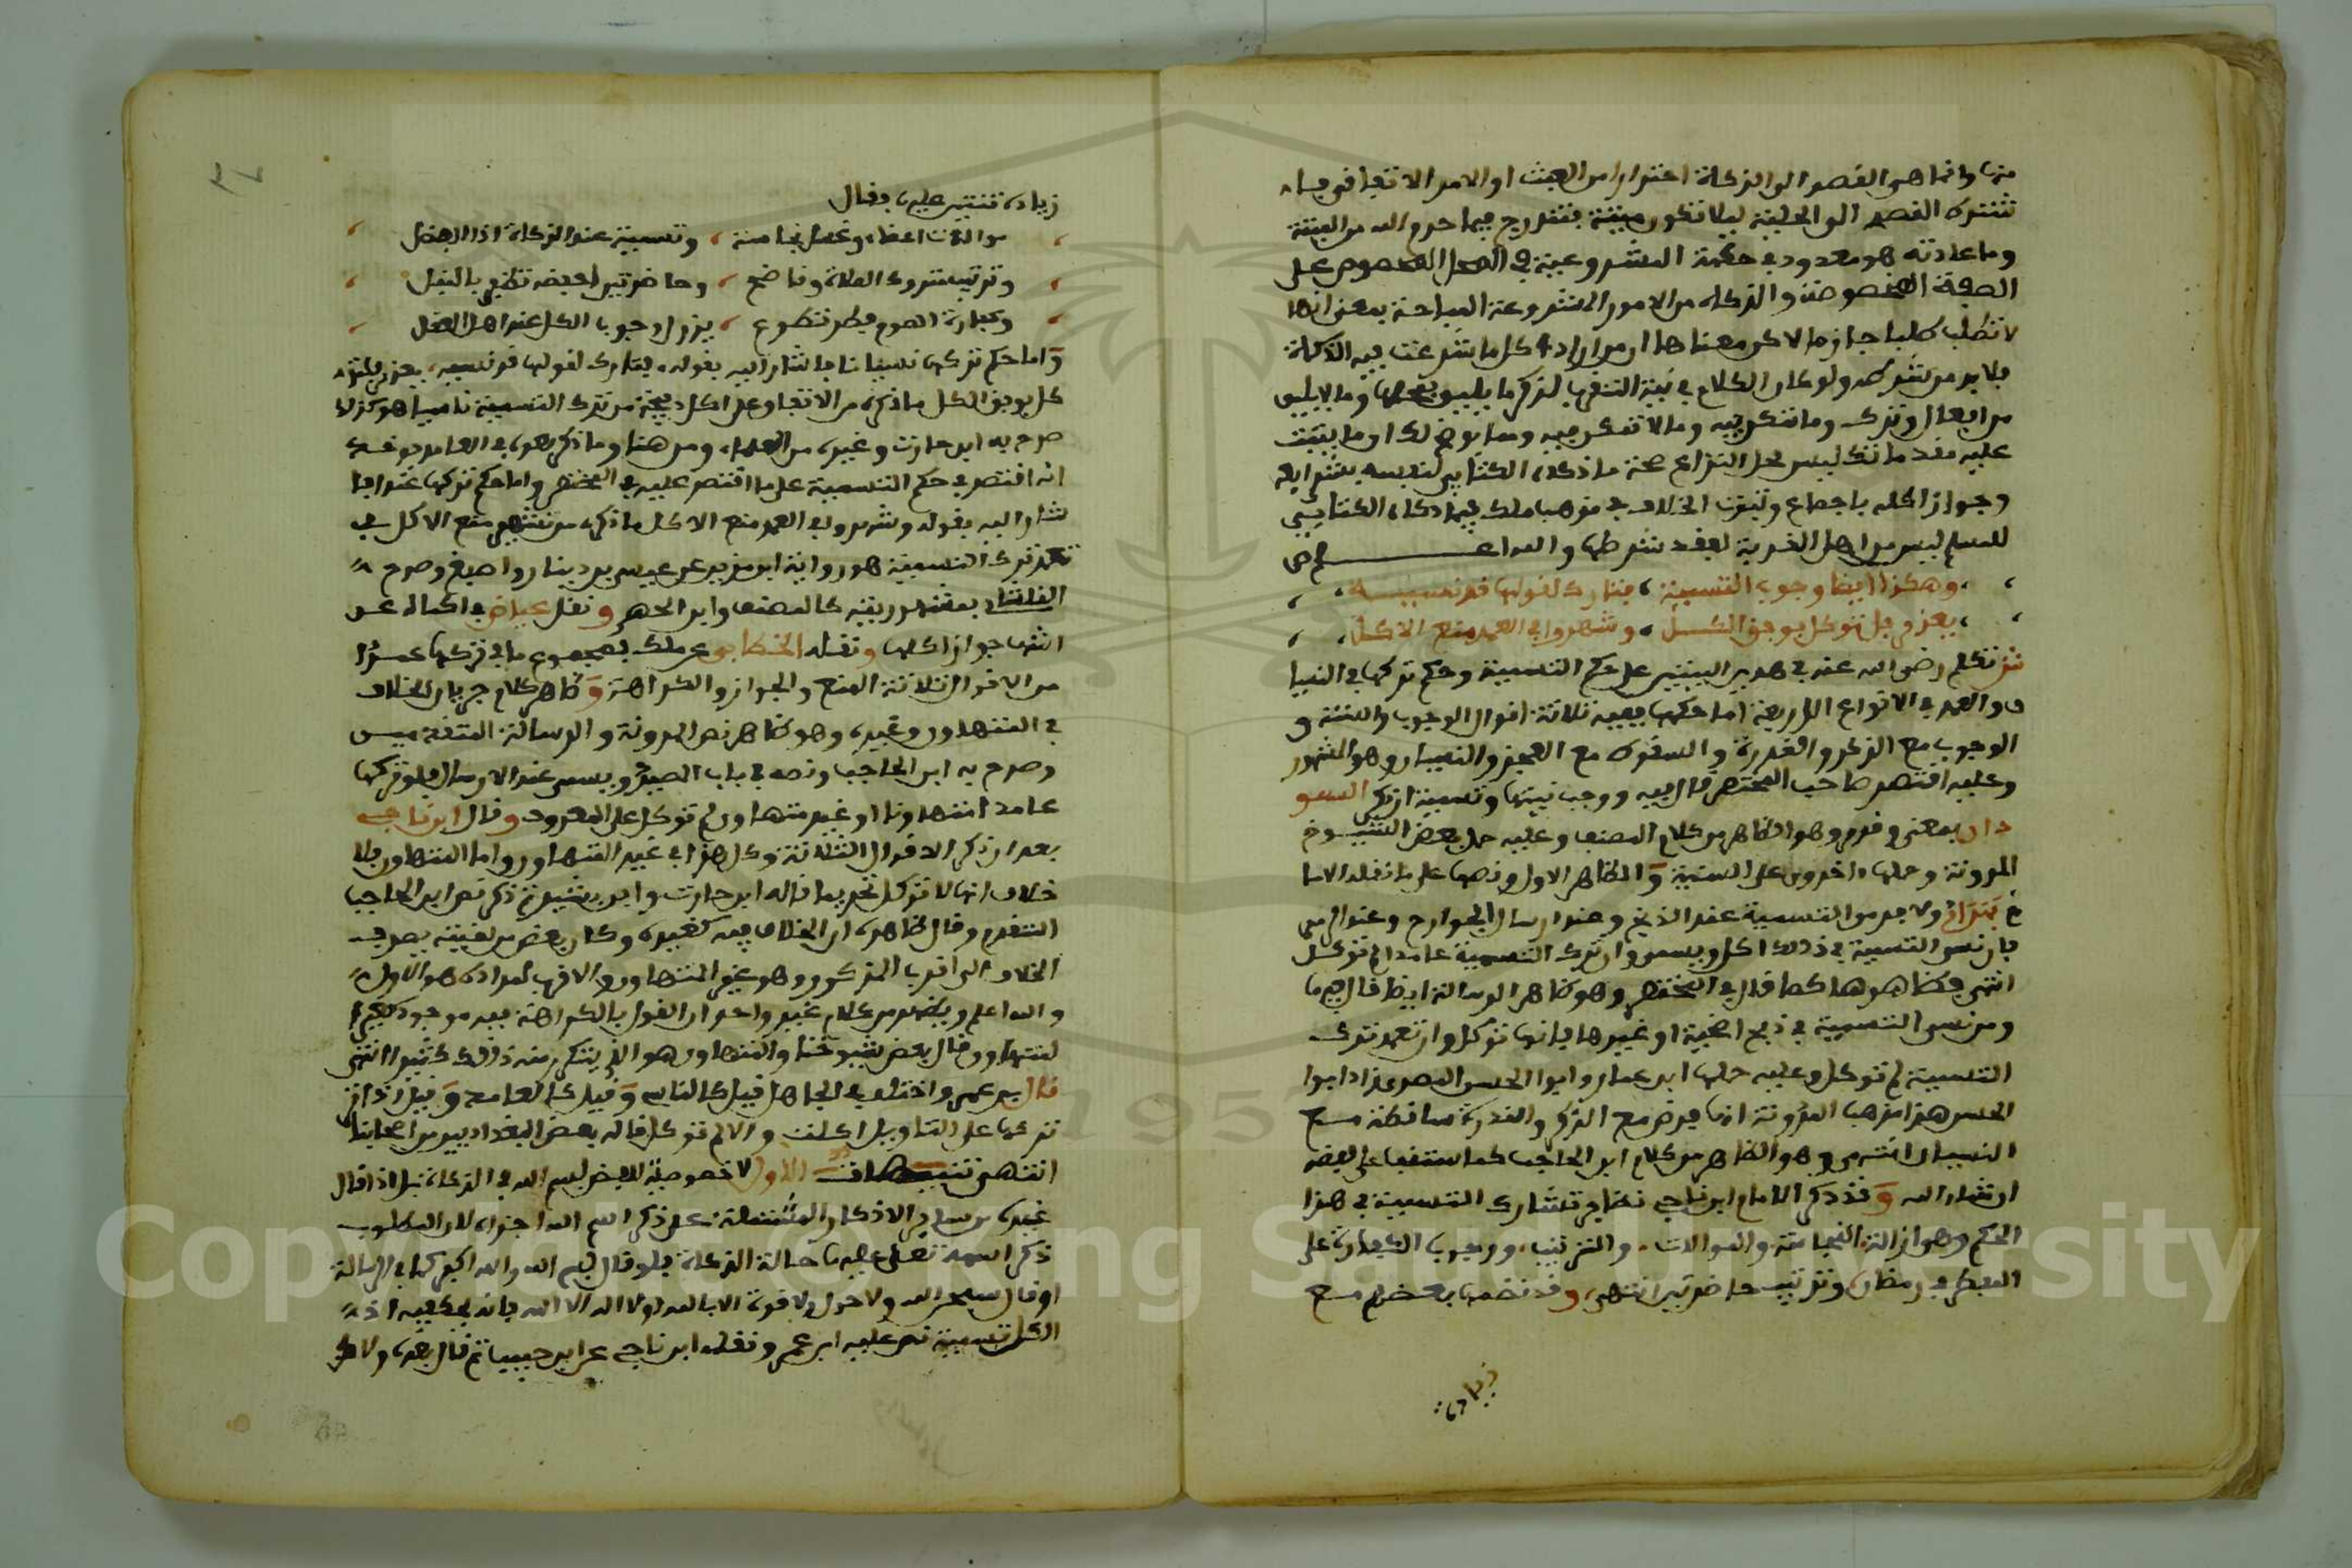 منها وانما هو القصد الى الذكاة احترازا من العبث او الامر الاتفاقي فلا
تشترك القصد الى الحلية ليلا تكون ميتة فتندرج فيما حرم الله من الميتة
وما عادته هو معدود في حكمة المشروعية في المحل المخصوص على
الصفة المخصوصة والذكاة من الامور المشروعة المباحة بمعنى انها
لا تطلب طلبا جازما لاكن معناها ان من اراد كل ما شرعت فيه الذكاة
فلا بد من شرط ولو كان الكلام في نية التقرب لذكر ما يليق بعضها وما لا يليق
من افعال وترك وما تنكر فيه وما لا تنكر فيه ومما يوضح لك او ما يثبت
عليه مقدماتك ليس محل النزاع صحة ما ذكاه الكتابي لنفسه بشرايطه
وجواز اكله باجماع وثبوت الخلاف في مذهب ملك فيما ذكاه الكتابي
للمسلم ليس من اهل القربة لفقد شرطها والله اعلم ص
وهكذا ايضا وجوب التسمية ، فتارك لقولها قد نسيه
يعذر فل توكل بوفق الكل ، وشهروا في العمد منع الاكل
ش تكلم رضي الله عنه في هذين البيتين على حكم التسمية وحكم تركها في النسيا
ن والعمد في الانواع الاربعة اما حكمها ففيه ثلاثة اقوال الوجوب والسنة و
الوجوب مع الذكر والقدرة والسقوط مع العجز والنسيان وهو المشهور
وعليه اقتصر صاحب المختصر قال فيه ووجب نيتها وتسمية ان ذكر السو
دان بمعنى وقدر وهو الظاهر من كلام المصنف وعليه حمل بعض الشيوخ
المدونة وحملها اخرون على السنية والظاهر الاول ونصها على ما نقله الاما
م ولا بد من التسمية عند الذبح وعند ارسال الجوارح وعند الرمي
فان نسي التسمية في ذلك اكل ويسمي وان ترك التسمية عامدا لم توكل
انتهى فظاهرها كما قال في المختصر وهو ظاهر الرسالة ايضا قال فيها
ومن نسي التسمية في ذبح اضحية او غيرها فانها توكل وان تعمد ترك
التسمية لم توكل وعليه حملها ابن عمار وابوا الحسن البصري زاد ابوا
الحسن هذا مذهب المدونة انها فرض مع الذكر والقدرة ساقطة مع
النسيان انتهى وهو الظاهر من كلام ابن الحاجب كما ستقف على نصه
ان شاء الله وقد ذكر الامام ابن ناجي نظاير تشارك التسمية في هذا
الحكم وهو ازالة النجاسة والموالات والترتيب ووجوب الكفارة على
المفطر في رمضان وترتيب حاضرتين انتهى وقد نظمها بعضهم مع
زيادة
زيادة ثنتين عليها فقال
موالات اعضاء وغسل نجاسة ، وتسمية عند الذكاة اذا
وترتيب متروك الصلاة وناضح ، وحاضرتين
وكفارة الصوم فطر تطوع ، يزول وجوب الكل عند اهل
واما حكم تركها نسيانا فاشار اليه بقوله فتارك لقولها قد نسيه يعذر فل تو
كل بوفق الكل ما ذكره من الاتفاق على اكل ذبيحة من ترك التسمية ناسيا هو كذلك
صرح به ابن حارث وغيره من العلماء ومن هنا وما ذكر بعده في العامد تعرف
انه اقتصر في حكم التسمية على ما اقتصر عليه في المختصر واما حكم تركها عمدا فا
شار اليه بقوله وشهروا في العمد منع الاكل ما ذكره من تشهير منع الاكل في
تعمد ترك التسمية هو رواية ابن مزين عن عيسى بن دينار واصبغ وصرح
الفلشاني بمشهوريته كالمصنف وابن الحمر ونقل عياض في اكماله عن
اشهب جواز اكلها ونقله الخطابي عن ملك فمجموع ما في تركها عمدا
من الاقوال ثلاثة المنع والجواز والكراهة وظاهر كلامه جريان الخلاف
في المتهاون وغيره وهو ظاهر نص المدونة والرسالة المتقدمين
وصرح به ابن الحاجب ونصه في باب الصيد ويسمي عند الارسال فلو تركها
عامدا متهاونا او غير متهاون لم توكل على المعروف وقال ابن ناجي
بعد ان ذكر الاقوال الثلاثة وكل هذا في غير المتهاون واما المتهاون فلا
خلاف انها لا توكل تحريما قاله ابن حارث وابن بشير ثم ذكر نص ابن الحاجب
المتقدم وقال ظاهره ان الخلاف فيه كغيره وكان بعض من لقيته يصرف
الخلاف الى اقرب المذكور وهو غير المتهاون والاقرب لمراده هو الاول
والله اعلم ويظهر من كلام غير واحد ان القول بالكراهة فيه موجود كغير ا
لمتهاون قال بعض شيوخنا والمتهاون هو الذي يتكرر منه ذلك كثيرا انتهى
قال بن عمر واختلف في الجاهل قيل كالناس وقيل كالعامد وقيل ان
تركها على التاويل اكلت والا لم توكل قاله بعض البغداديين من اصحابنا
انتهى تنبيهات الاول لا خصوصية للفظ بسم الله في الذكاة بل اذا قال
غيره من ساير الاذكار المشتملة على ذكر اسم الله اجزاه لان المطلوب
ذكر اسمه تعلى عليها حالة الذكاة فلو قال بسم الله والله اكبر كما في الرسالة
او قال سبحن الله ولا حول ولا قوة الا بالله او لا اله الا الله فانه يكفيه اذ
الكل تسمية نص عليه ابن عمر ونقله ابن ناجي عن ابن حبيب ثم قال بعده ولاكن